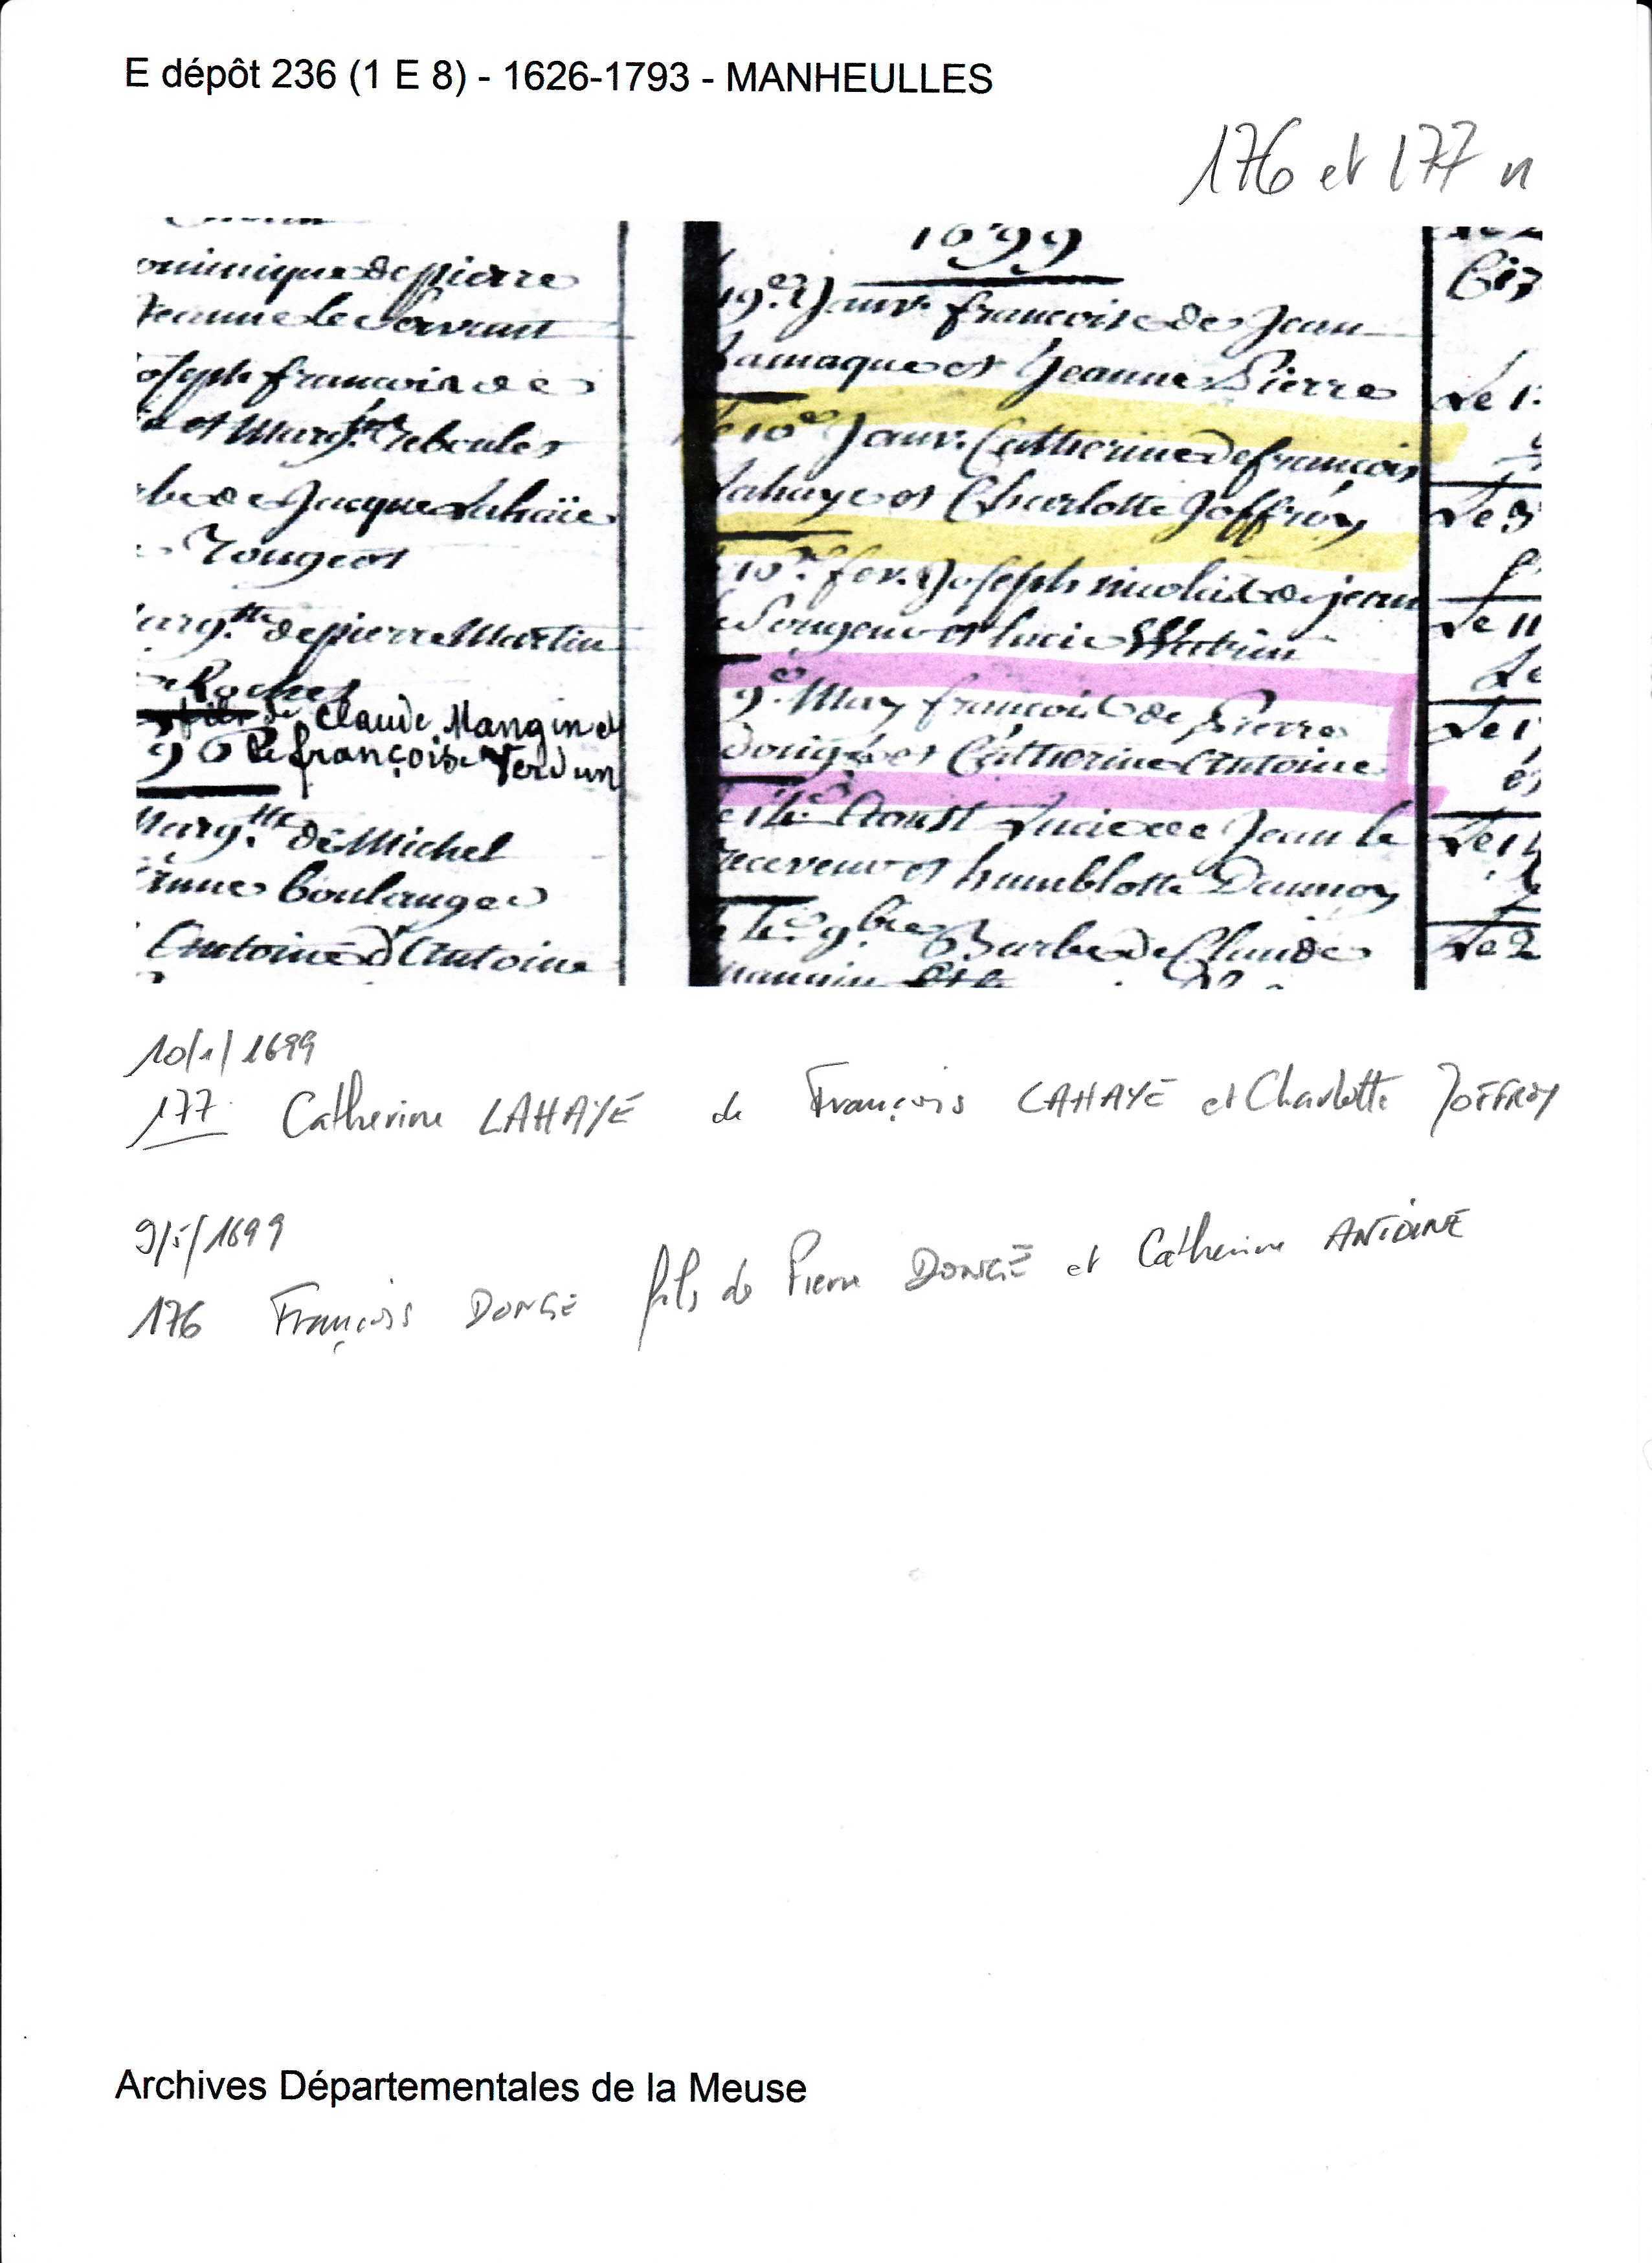 E dépôt 236 (1 E 8) - 1626-1793 - MANHEULLES
176 et 177 n
de pierre
Jeanne le Servant
Joseph francois de
et Marg.te
de Jacque Lahaïe
Rougeot
Marg.tte de pierre Martin
Roches
fils de Claude Mangin et
96 de françoise Verdun
Marg.tte de Michel
boulanger
Antoine d'Antoine
1699
19.e Janv. francoise de Jean
Lamaque et Jeanne Pierre
le 10e Janv. Catherine de françois
Lahaye et Charlotte Joffroy
10.e fev. Joseph nicolas de jean
et lucie Watrin
9.e May francois de Pierre
Dongé et Catherine Antoine
Aoust Lucie de Jean le
receveur et humblotte Daunoy
9.bre Barbe de Claude
Le 1
Le 9
Le 11
Le
Le 1
et
Le 14
Le 2
10/1/1699
177 Catherine LAHAYE de François LAHAYE et Charlotte JOFFROY
9/5/1699
176 François DONGE fils de Pierre DONGÉ et Catherine ANTOINE
Archives Départementales de la Meuse